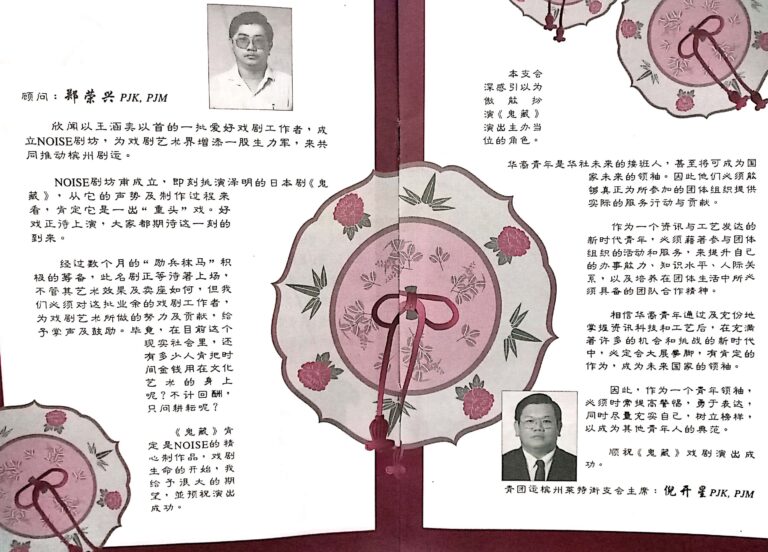 顾问：郑荣兴 PJK, PJM
欣闻以王涵卖以首的一批爱好戏剧工作者，成
立NOISE剧坊，为戏剧艺术界增添一股生力军，来共
同推动槟州剧运。
NOISE剧坊甫成立，即刻挑演泽明的日本剧《鬼
藏》，从它的声势及制作过程来
看，肯定它是一出“重头”戏。好
戏正待上演，大家都期待这一刻的
到来。
经过数个月的“励兵秣马”积
极的筹备，此名剧正等待著上场，
不管其艺术效果及卖座如何，但我
们必须对这批业余的戏剧工作者，
为戏剧艺术所做的努力及贡献，给
予掌声及鼓励。毕竟，在目前这个
现实社会里，还
有多少人肯把时
间金钱用在文化
艺术的身上
呢？不计回酬，
只问耕耘呢？
《鬼藏》肯
定是NOISE的精
心制作品，戏剧
生命的开始，我
给予很大的期
望，並预祝演出
成功。
本支会
深感引以为
傲能扮
演《鬼藏》
演出主办当
位的角色。
华裔青年是华社未来的接班人，甚至将可成为国
家未来的领袖。因此他们必须能
够真正为所参加的团体组织提供
实际的服务行动与贡献。
作为一个资讯与工艺发达的
新时代青年，必须藉著参与团体
组织的活动和服务，来提升自己
的办事能力、知识水平、人际关
系，以及培养在团体生活中所必
须具备的团队合作精神。
相信华裔青年通过及充份地
掌握资讯科技和工艺后，在充满
著许多的机会和挑战的新时代
中，必定会大展拳脚，有肯定的
作为，成为未来国家的领袖。
因此，作为一个青年领袖，
必须时常提高警惕，勇于表达，
同时尽量充实自己，树立榜样，
以成为其他青年人的典范。
顺祝《鬼藏》戏剧演出成
功。
青团运槟州莱特街支会主席：倪开星 PJK, PJM